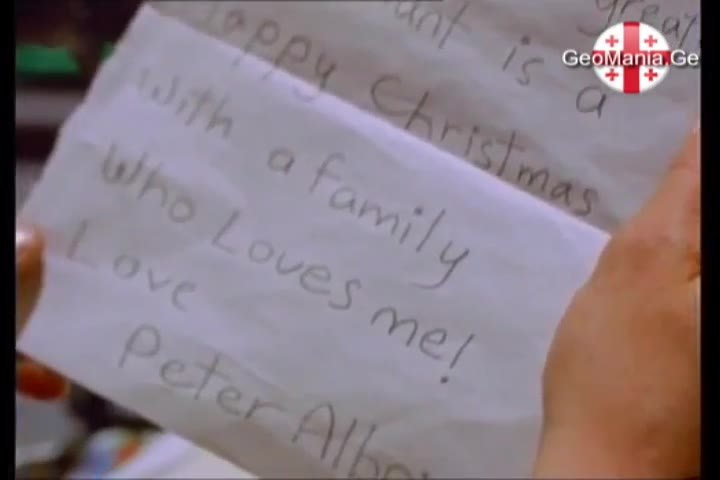 great
ant is a
Happy Christmas
with a family
Who Loves me!
Love
Peter Albe
GeoMania.Ge